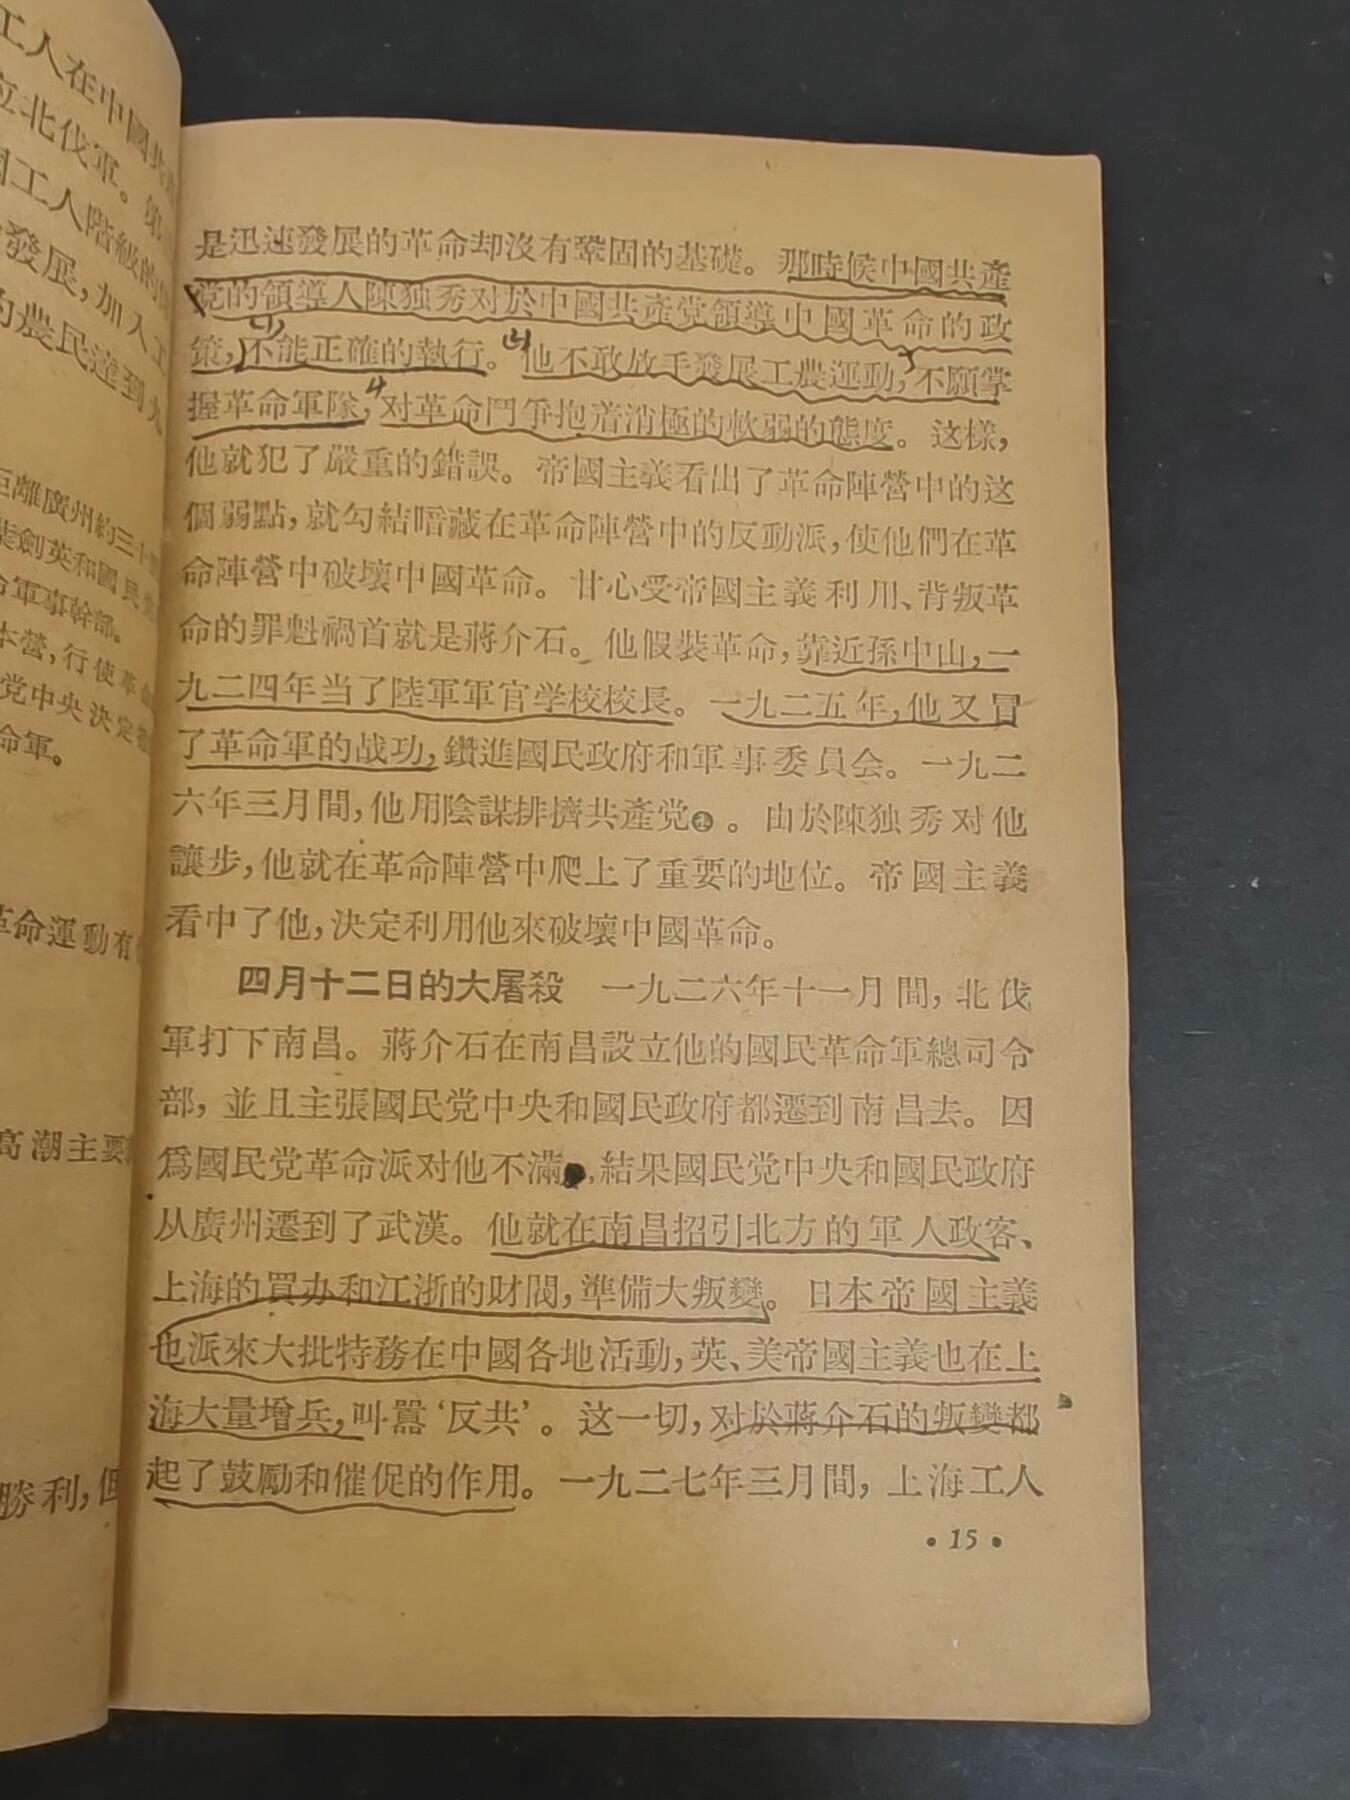 工人在中國共
立北伐軍。第
國工人階級的
發展，加入工
的農民達到九
距離廣州約三十
葉劍英和國民党
命軍事幹部。
本營，行使革命
党中央決定把
命軍。
革命運動有什
高潮主要
勝利，但
是迅速發展的革命却沒有鞏固的基礎。那時候中國共產
党的領導人陳独秀对於中國共產党領導中國革命的政
策，不能正確的執行。他不敢放手發展工農運動，不願掌
握革命軍隊，对革命鬥爭抱着消極的軟弱的態度。这樣，
他就犯了嚴重的錯誤。帝國主義看出了革命陣營中的这
個弱點，就勾結暗藏在革命陣營中的反動派，使他們在革
命陣營中破壞中國革命。甘心受帝國主義利用、背叛革
命的罪魁禍首就是蔣介石。他假裝革命，靠近孫中山，一
九二四年当了陸軍軍官学校校長。一九二五年，他又冒
了革命軍的战功，鑽進國民政府和軍事委員会。一九二
六年三月間，他用陰謀排擠共產党。由於陳独秀对他
讓步，他就在革命陣營中爬上了重要的地位。帝國主義
看中了他，決定利用他來破壞中國革命。
四月十二日的大屠殺 一九二六年十一月間，北伐
軍打下南昌。蔣介石在南昌設立他的國民革命軍總司令
部，並且主張國民党中央和國民政府都遷到南昌去。因
爲國民党革命派对他不滿，結果國民党中央和國民政府
从廣州遷到了武漢。他就在南昌招引北方的軍人政客、
上海的買办和江浙的財閥，準備大叛變。日本帝國主義
也派來大批特務在中國各地活動，英、美帝國主義也在上
海大量增兵，叫囂‘反共’。这一切，对於蔣介石的叛變都
起了鼓勵和催促的作用。一九二七年三月間，上海工人
• 15 •